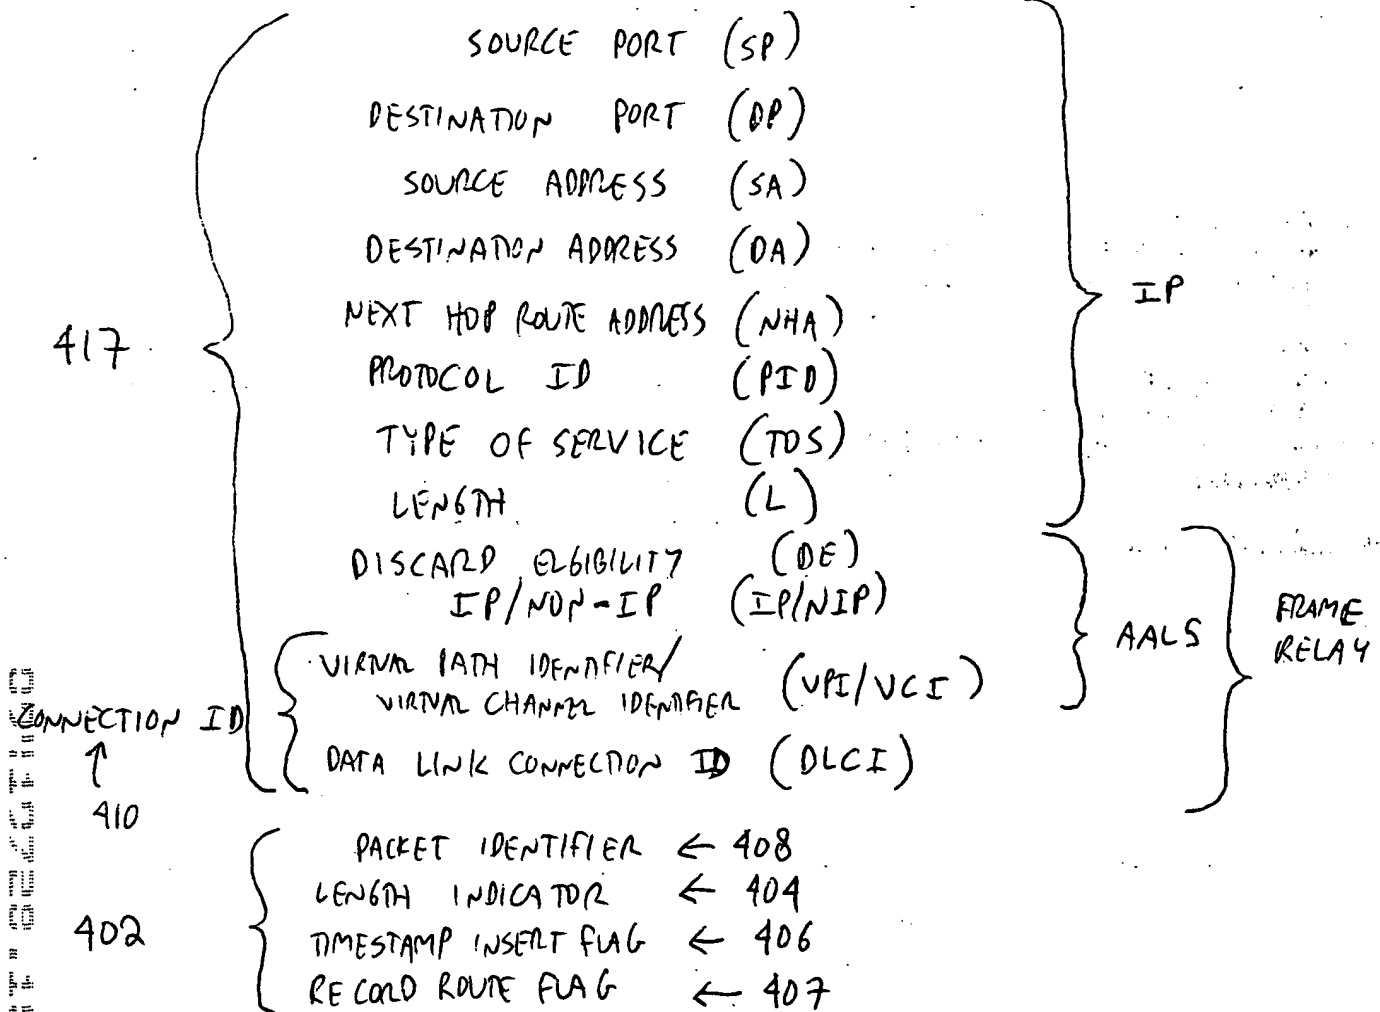 SOURCE PORT (SP)
DESTINATION PORT (DP)
SOURCE ADDRESS (SA)
DESTINATION ADDRESS (DA)
NEXT HOP ROUTE ADDRESS (NHA)
PROTOCOL ID (PID)
TYPE OF SERVICE (TOS)
LENGTH (L)
IP
417
DISCARD ELGIBILITY (DE)
IP/NON-IP (IP/NIP)
VIRTUAL PATH IDENTIFIER/
VIRTUAL CHANNEL IDENTIFIER (VPI/VCI)
AAL5
FRAME
RELAY
CONNECTION ID
↑
410
DATA LINK CONNECTION ID (DLCI)
402
PACKET IDENTIFIER ← 408
LENGTH INDICATOR ← 404
TIMESTAMP INSERT FLAG ← 406
RECORD ROUTE FLAG ← 407